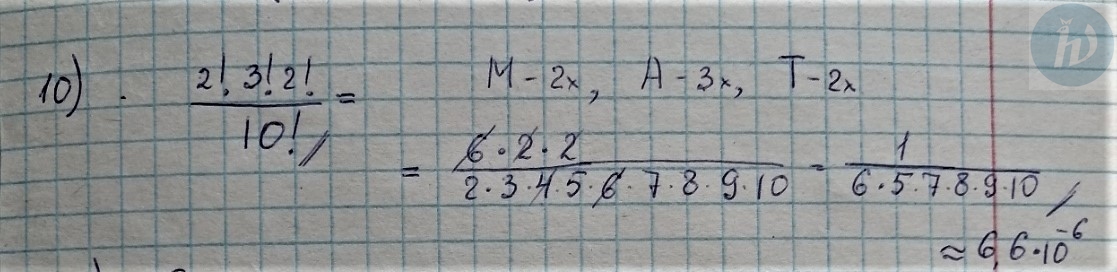 10) . 2! 3! 2! / 10! = M - 2x, A - 3x, T - 2x
= 6 · 2 · 2 / 2 · 3 · 4 · 5 · 6 · 7 · 8 · 9 · 10 = 1 / 6 · 5 · 7 · 8 · 9 · 10
≈ 6,6 · 10⁻⁶